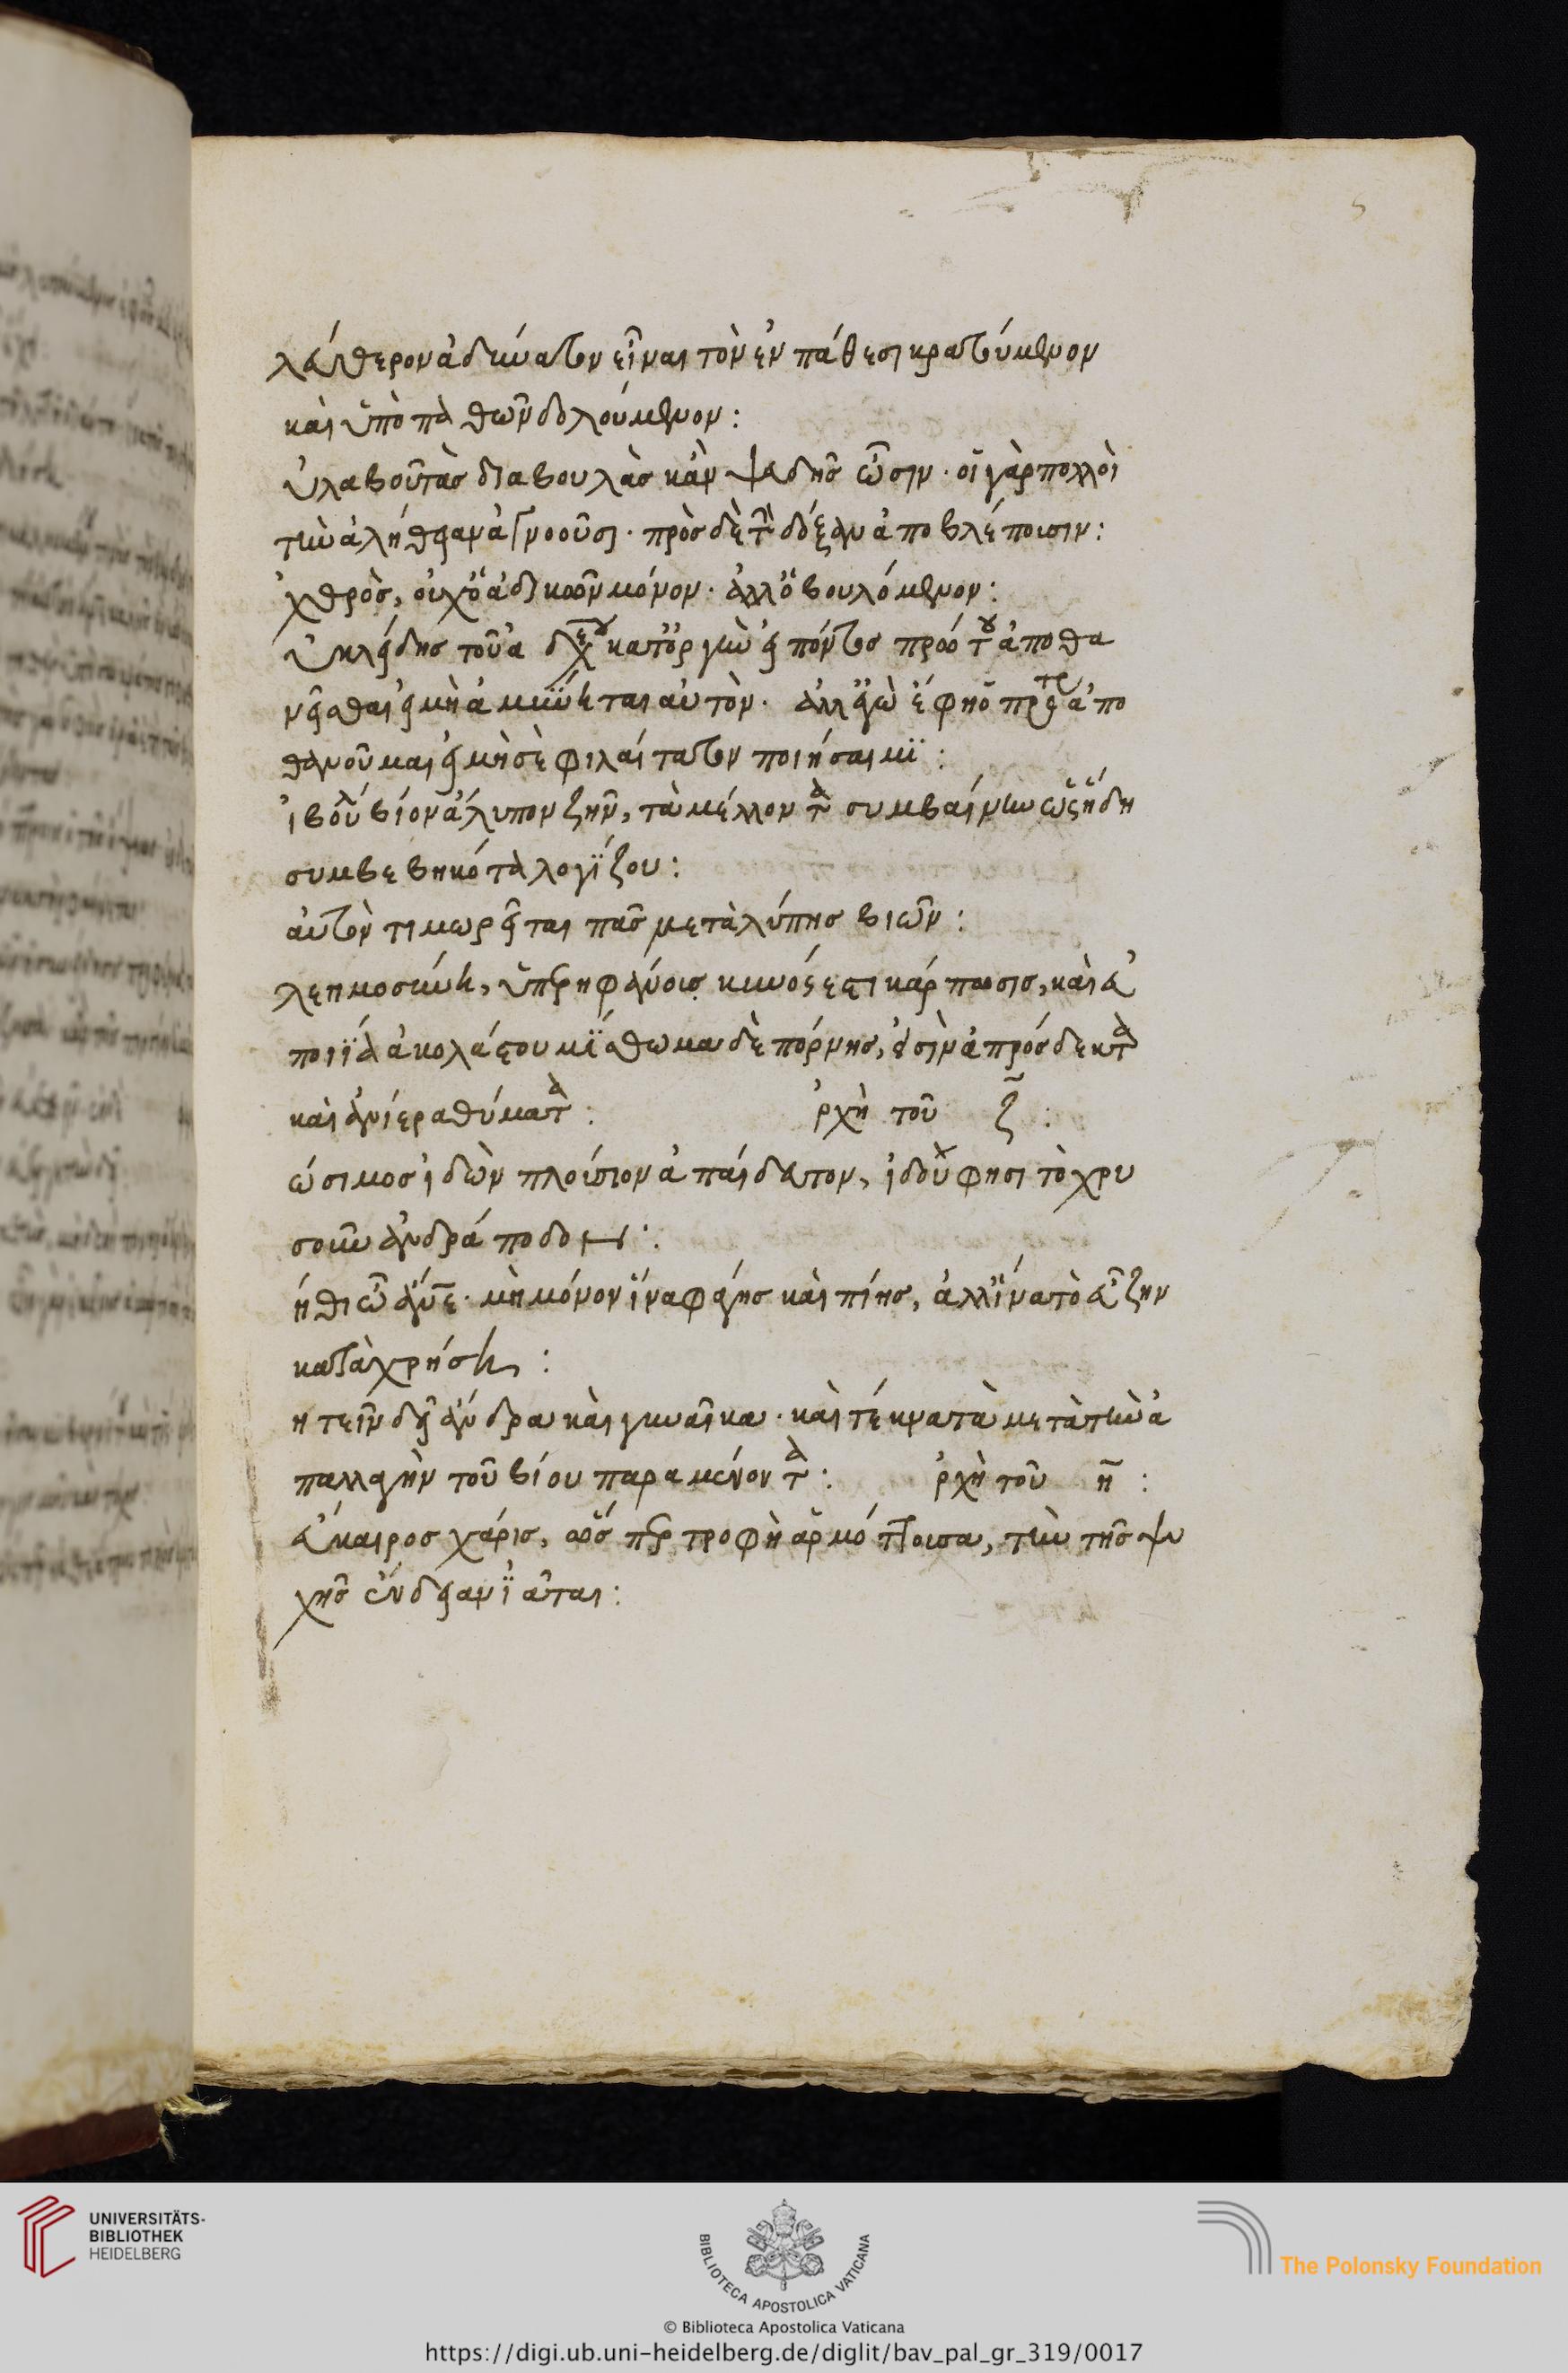 λεύθερον ἀδύνατον εἶναι τὸν ἐν πάθεσι κρατούμενον
καὶ ὑπὸ παθῶν δολούμενον:
ὐλαβοῦ τὰς διαβουλὰς κἂν ψευδεῖς ὦσιν· οἱ γὰρ πολλοὶ
τὴν ἀλήθειαν ἀγνοοῦσι· πρὸς δὲ τὴν δόξαν ἀποβλέποισιν:
χθρὸς, οὐχ ὁ ἀδικῶν μόνον· ἀλλ' ὁ βουλόμενον:
ὐκλείδης τοῦ ἀδελχοῦ κατ' ὀργὴν εἰπόντος πρὸ τοῦ ἀποθα
νεῖσθαι εἰ μὴ ἀμύνηται αὐτὸν· ἀλλ' ἐγὼ ἔφη ὁ πρότερον ἀπο
θανοῦμαι εἰ μὴ σὲ φιλαίτατον ποιήσαιμϊ:
ἰ βούλει βίον ἄλυπον ζῆν, τὰ μέλλοντα συμβαίνειν ὡς ἤδη
συμβεβηκότα λογΐζου:
αὐτὸν τιμωρεῖται πᾶς μετὰ λύπης βιῶν:
λεημοσύνη, ὑπερηφάνοις κενός ἐστι κάρπωσις, καὶ εὐ
ποιΐα ἀκολάστου μΐσθωμα δὲ πόρνης, εἰσὶν ἀπρόσδεκτα
καὶ ἀνίερα θύματα: ἀρχὴ τοῦ ζ̄:
ώσιμος ἰδὼν πλοίσιον ἀπαίδευτον, ἰδοὺ φησι τὸ χρυ
σοῦν ἀνδράποδον:
ήθι ὦ ἄνθρωπε· μὴ μόνον ἵνα φάγης καὶ πίης, ἀλλ' ἵνα τὸ εὖ ζῆν
καταχρήση:
ητεῖν δεῖ ἄνδρα καὶ γυναῖκα· καὶ τέκνα τὰ μετὰ τὴν ἀ
παλλαγὴν τοῦ βίου παραμένοντα: ἀρχὴ τοῦ η̄:
εὔκαιρος χάρις, ὥσπερ τροφὴ ἁρμόττοισα, τὴν τῆς ψυ
χῆς ἔνδειαν ϊᾶται:
UNIVERSITÄTS-
BIBLIOTHEK
HEIDELBERG
BIBLIOTECA APOSTOLICA VATICANA
The Polonsky Foundation
© Biblioteca Apostolica Vaticana
https://digi.ub.uni-heidelberg.de/diglit/bav_pal_gr_319/0017